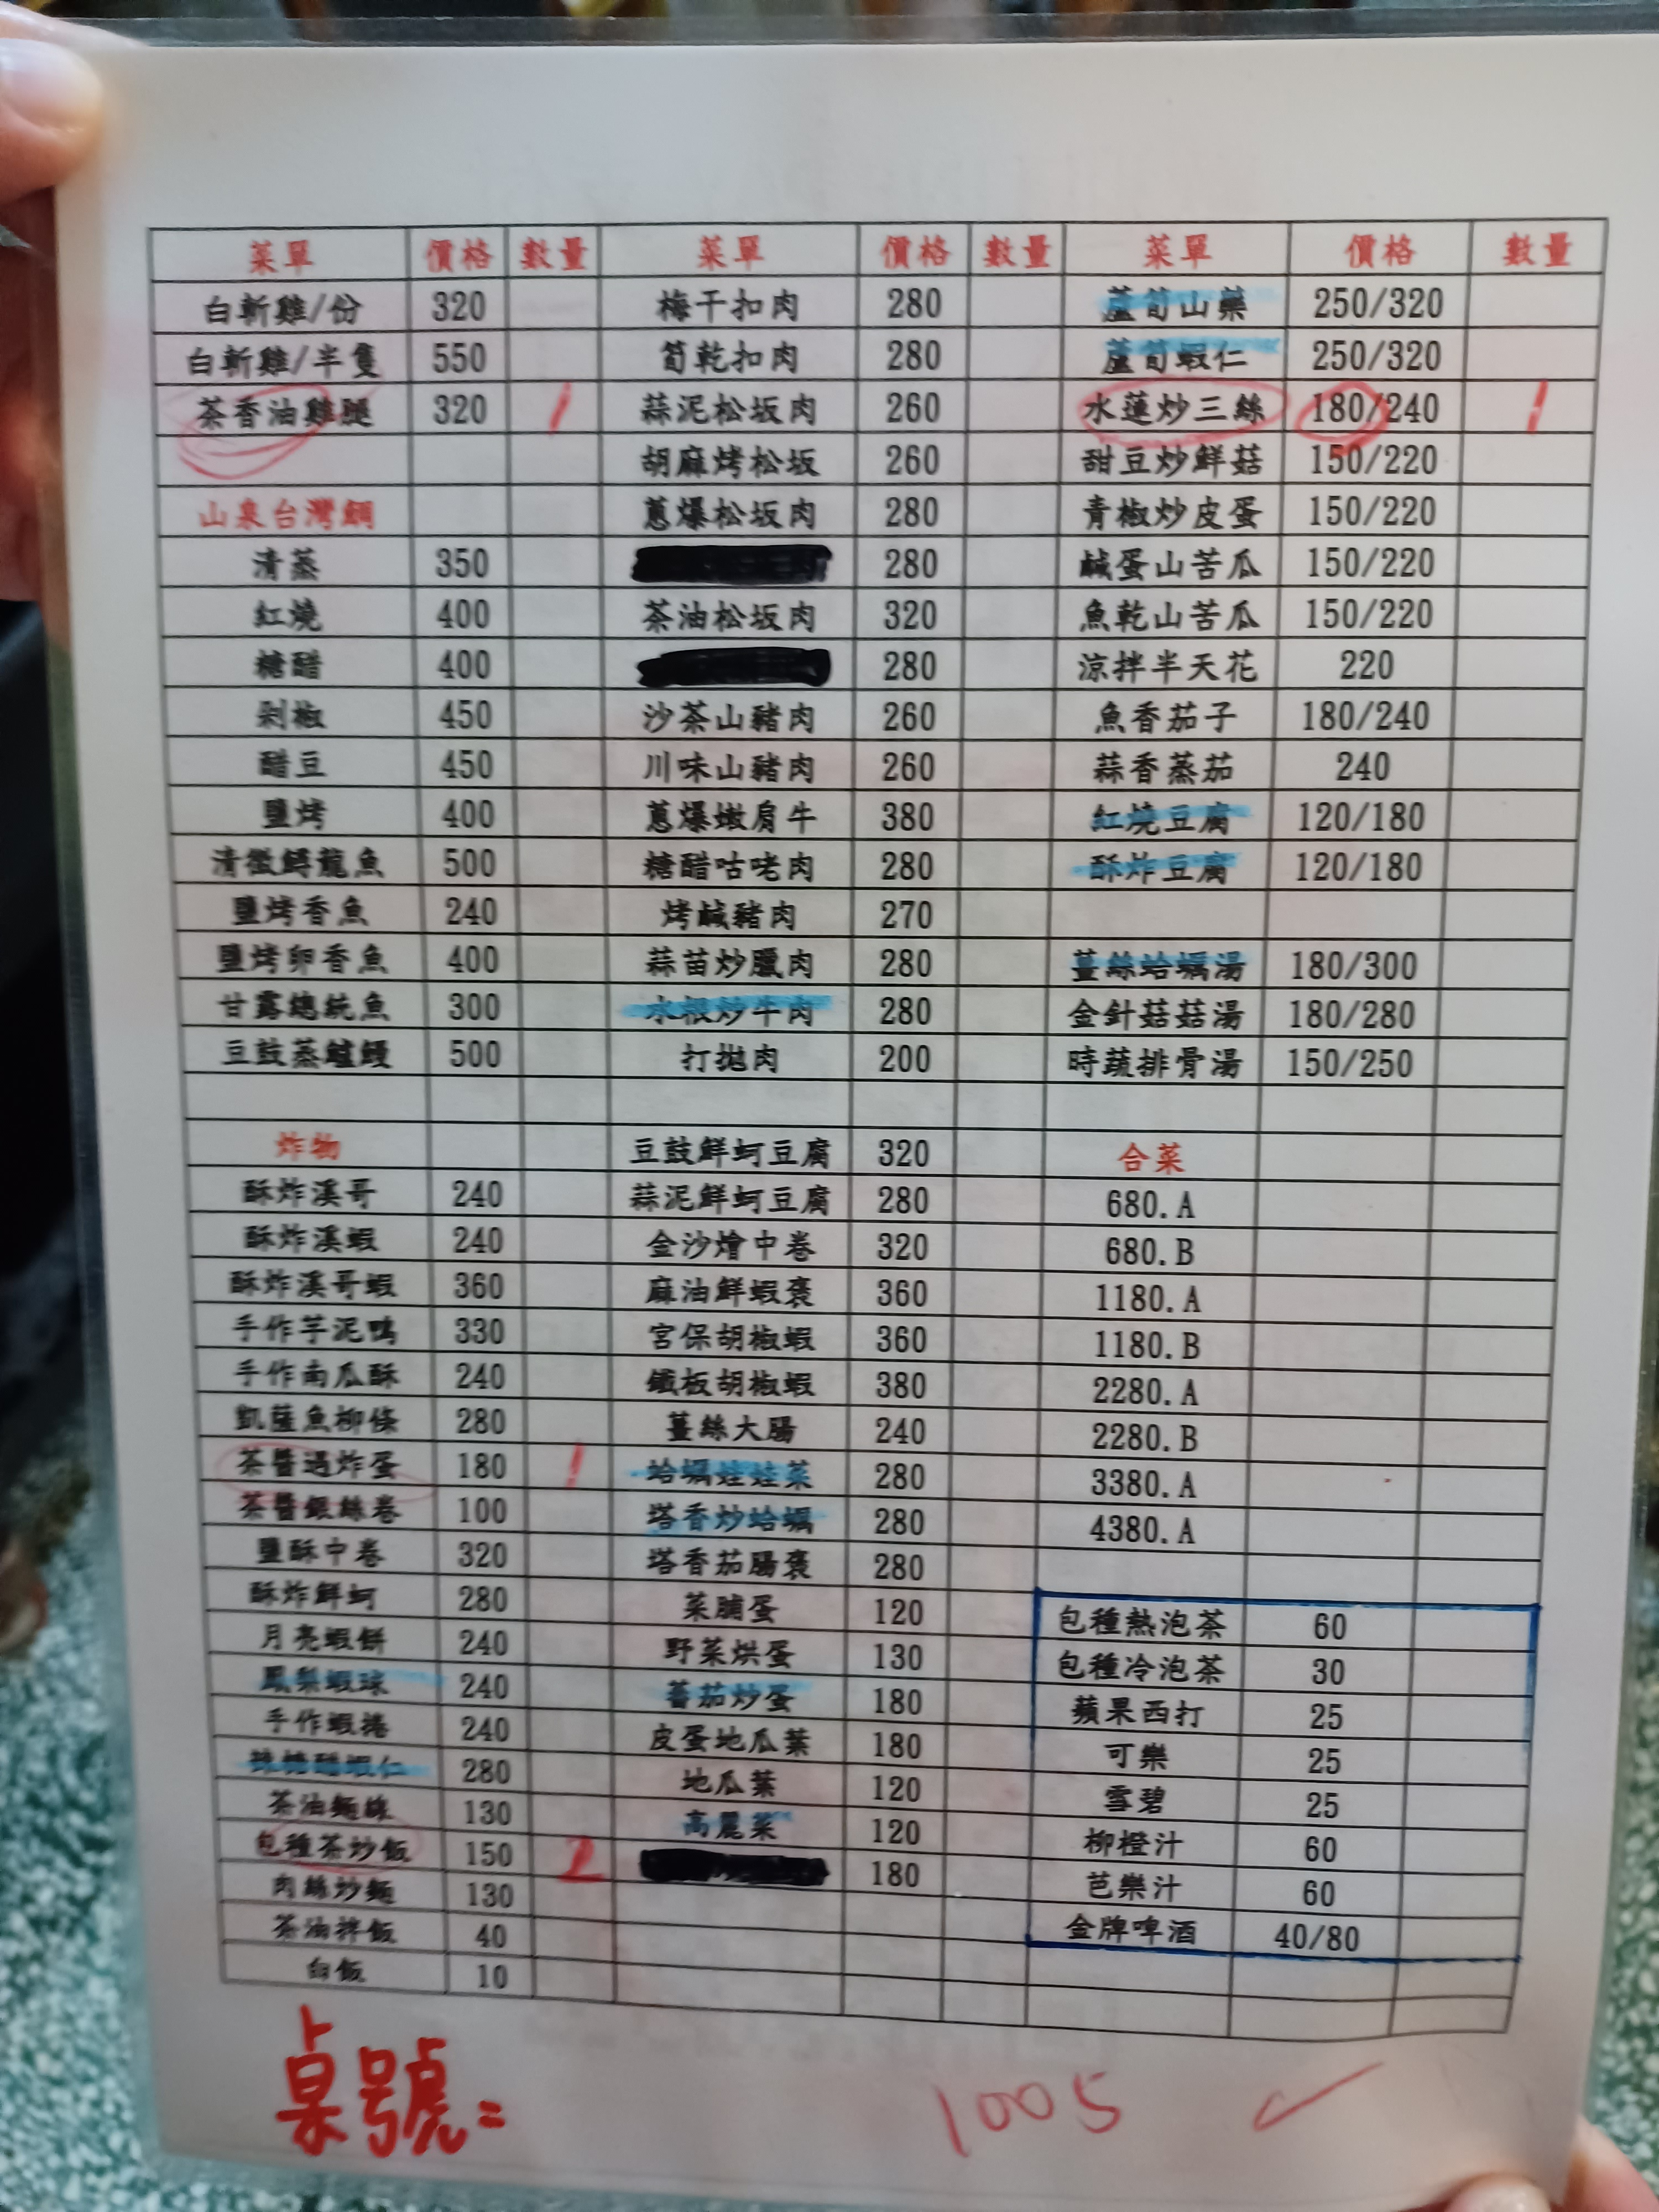 菜單 價格 數量 菜單 價格 數量 菜單 價格 數量
白斬雞/份 320 梅干扣肉 280 蘆筍山藥 250/320
白斬雞/半隻 550 筍乾扣肉 280 蘆筍蝦仁 250/320
茶香油雞腿 320 1 蒜泥松坂肉 260 水蓮炒三絲 180/240 1
胡麻烤松坂 260 甜豆炒鮮菇 150/220
山泉台灣鯛 蔥爆松坂肉 280 青椒炒皮蛋 150/220
清蒸 350 280 鹹蛋山苦瓜 150/220
紅燒 400 茶油松坂肉 320 魚乾山苦瓜 150/220
糖醋 400 280 涼拌半天花 220
剁椒 450 沙茶山豬肉 260 魚香茄子 180/240
醋豆 450 川味山豬肉 260 蒜香蒸茄 240
鹽烤 400 蔥爆嫩肩牛 380 紅燒豆腐 120/180
清徵鱘龍魚 500 糖醋咕咾肉 280 酥炸豆腐 120/180
鹽烤香魚 240 烤鹹豬肉 270
鹽烤卵香魚 400 蒜苗炒臘肉 280 薑絲蛤蠣湯 180/300
甘露總統魚 300 水根炒牛肉 280 金針菇菇湯 180/280
豆鼓蒸鱸鰻 500 打拋肉 200 時蔬排骨湯 150/250
炸物 豆鼓鮮蚵豆腐 320 合菜
酥炸溪哥 240 蒜泥鮮蚵豆腐 280 680.A
酥炸溪蝦 240 金沙燴中卷 320 680.B
酥炸溪哥蝦 360 麻油鮮蝦褒 360 1180.A
手作芋泥鴨 330 宮保胡椒蝦 360 1180.B
手作南瓜酥 240 鐵板胡椒蝦 380 2280.A
凱薩魚柳條 280 薑絲大腸 240 2280.B
茶醬過炸蛋 180 1 蛤蠣娃娃菜 280 3380.A
茶醬銀絲卷 100 塔香炒蛤蠣 280 4380.A
鹽酥中卷 320 塔香茄腸褒 280
酥炸鮮蚵 280 菜脯蛋 120 包種熱泡茶 60
月亮蝦餅 240 野菜烘蛋 130 包種冷泡茶 30
鳳梨蝦球 240 蕃茄炒蛋 180 蘋果西打 25
手作蝦捲 240 皮蛋地瓜葉 180 可樂 25
糖醋蝦仁 280 地瓜葉 120 雪碧 25
茶油麵線 130 高麗菜 120 柳橙汁 60
包種茶炒飯 150 2 180 芭樂汁 60
肉絲炒麵 130 金牌啤酒 40/80
茶油拌飯 40
白飯 10
桌號=
1005